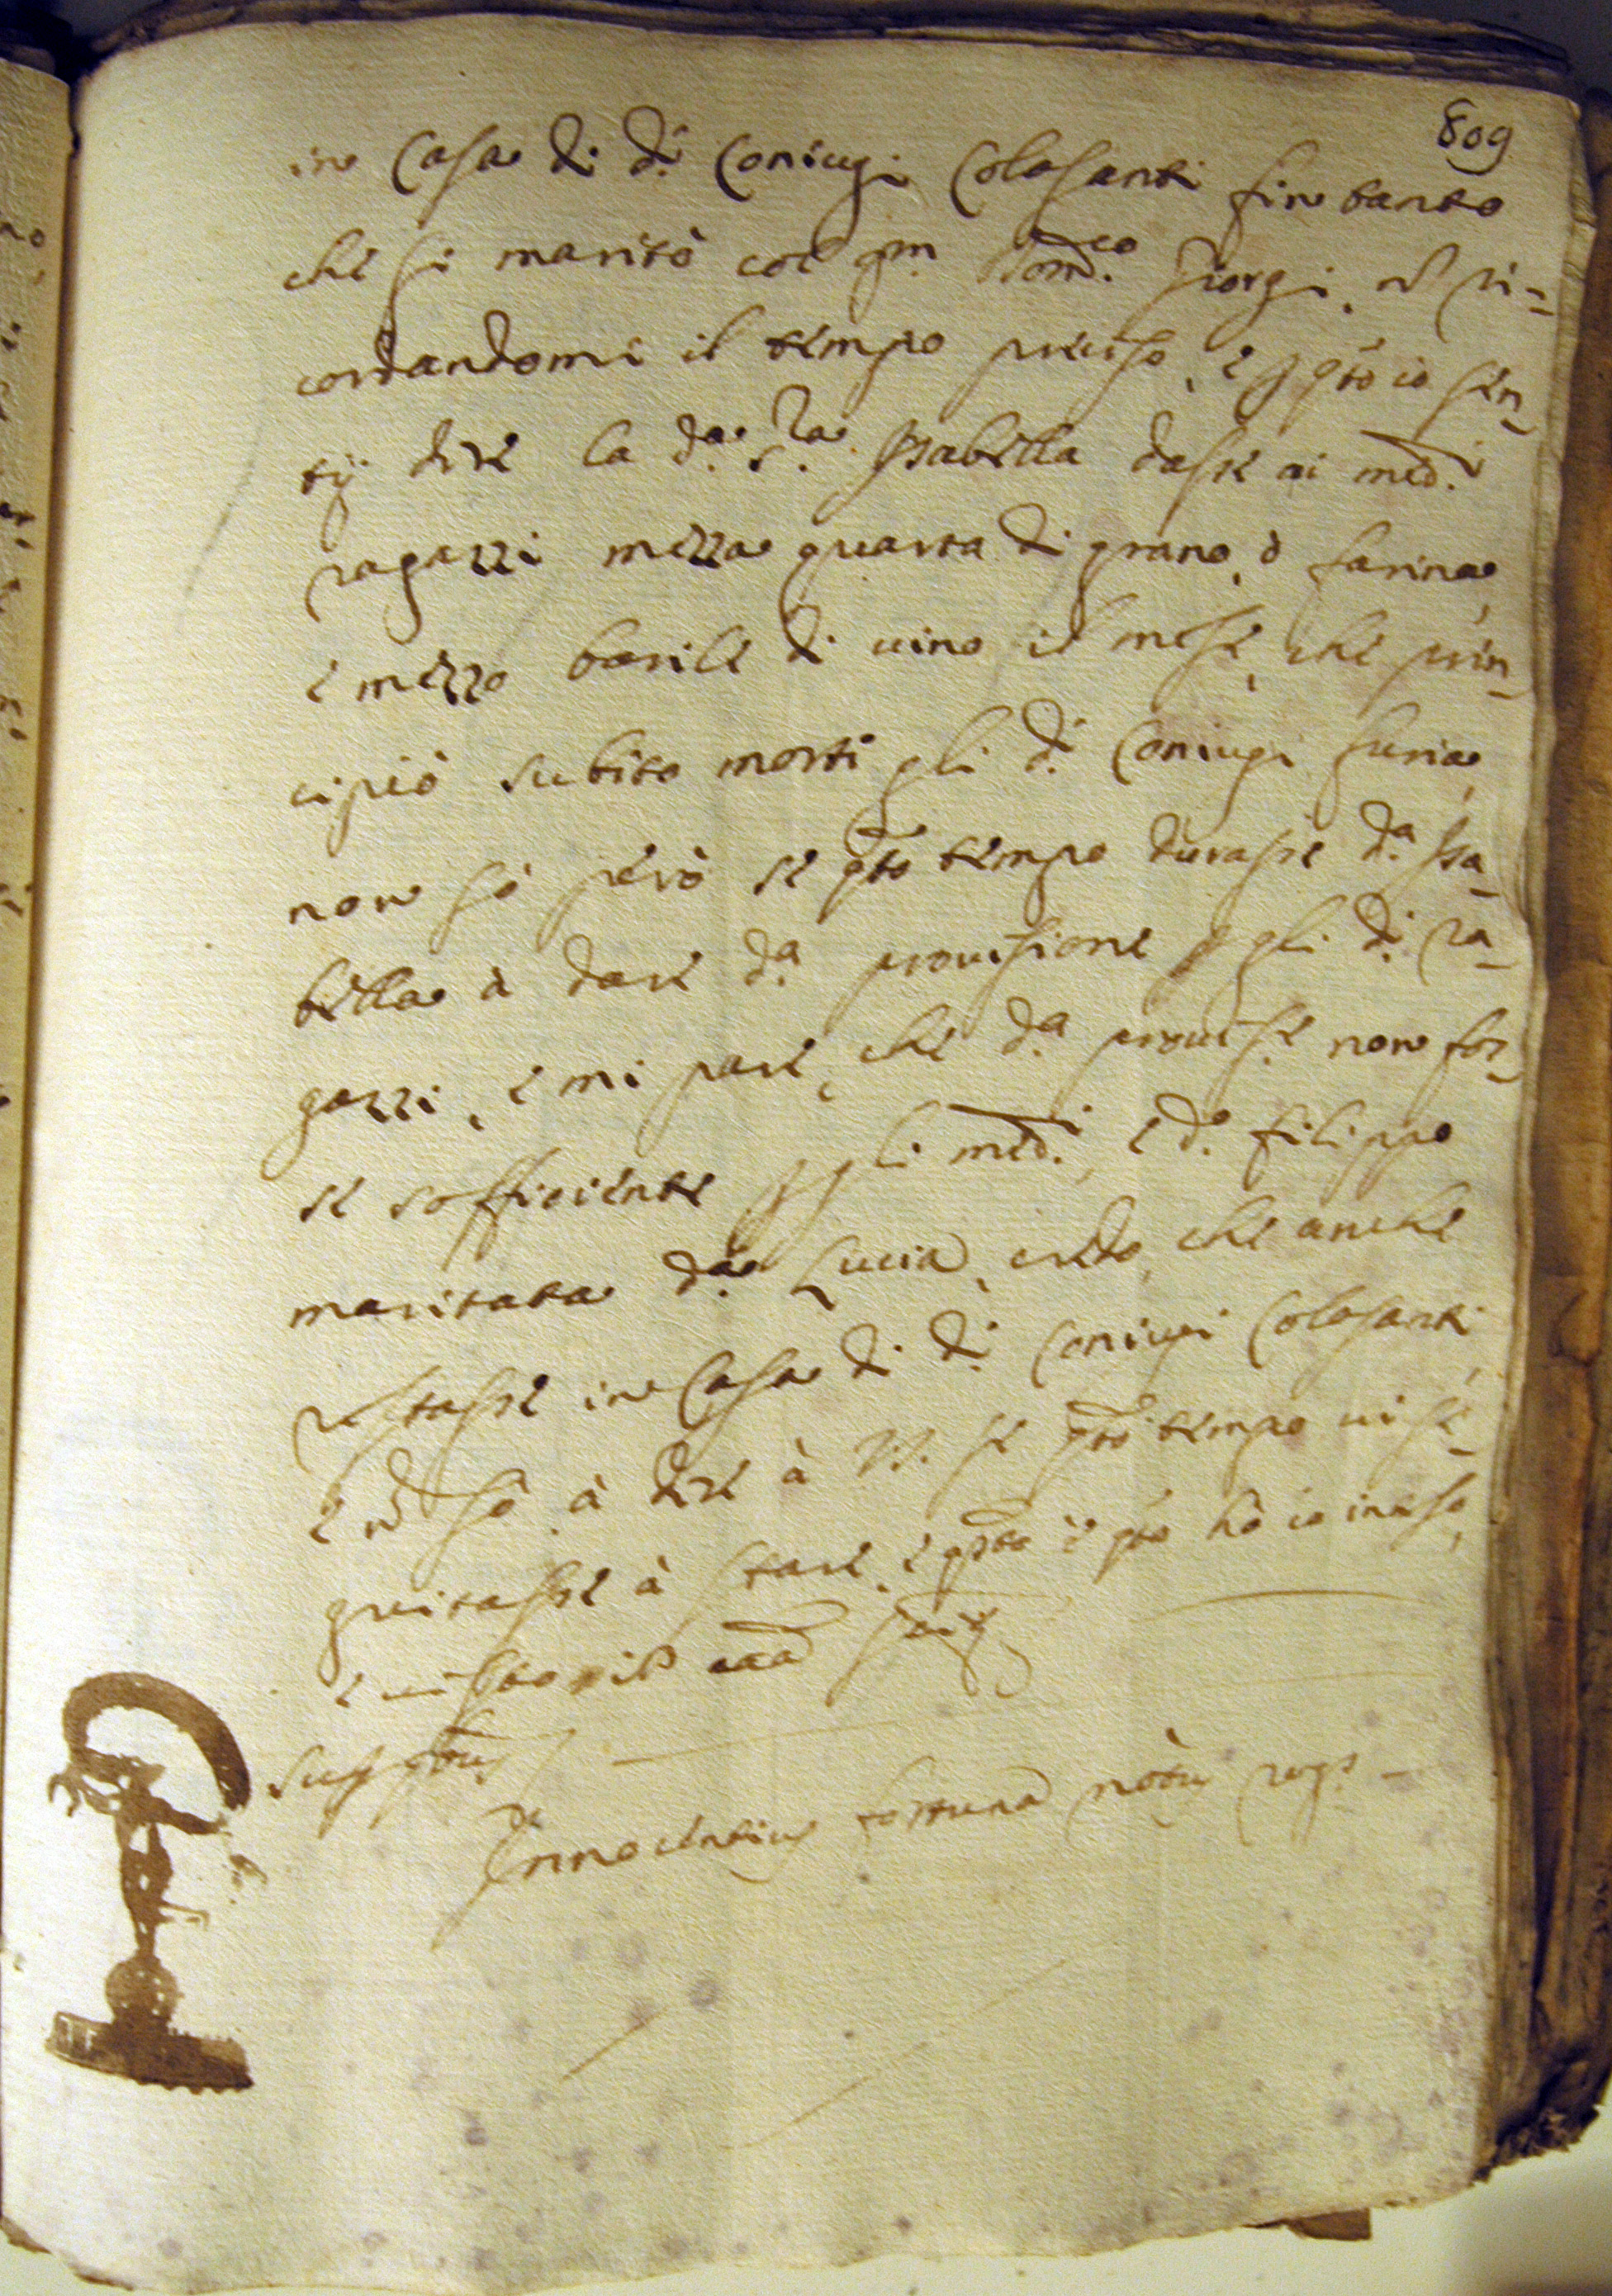 809
in Casa di d.i Coniugi Colasanti fin tanto
che si maritò col qm. Dom.co Giorgi, nõ ri=
cordandomi il tempo preciso, e p q.to io sen=
tij dire la d.a S.ra Isabella dasse ai med.i
ragazzi mezza quarta di grano, ò farina,
e mezzo barile di uino il mese, che prin=
cipiò subito morti gli d.i Coniugi furia,
non sò però se q.to tempo durasse d.a Isa=
bella à dare d.a prouisione p gli d.i ra=
gazzi, e mi pare, che d.a prouis.e non fos=
se sofficiente p gli med.i, e d.o Filippo
maritata d.a Lucia, credo, che anche
restasse in Casa di d.i Coniugi Colasanti,
e nõ sò à dire à VS. se q.to tempo ui se=
guitasse à stare, e q.sto è q.to hò io inteso,
e uisto
Innocentius fortuna not.s rog.s